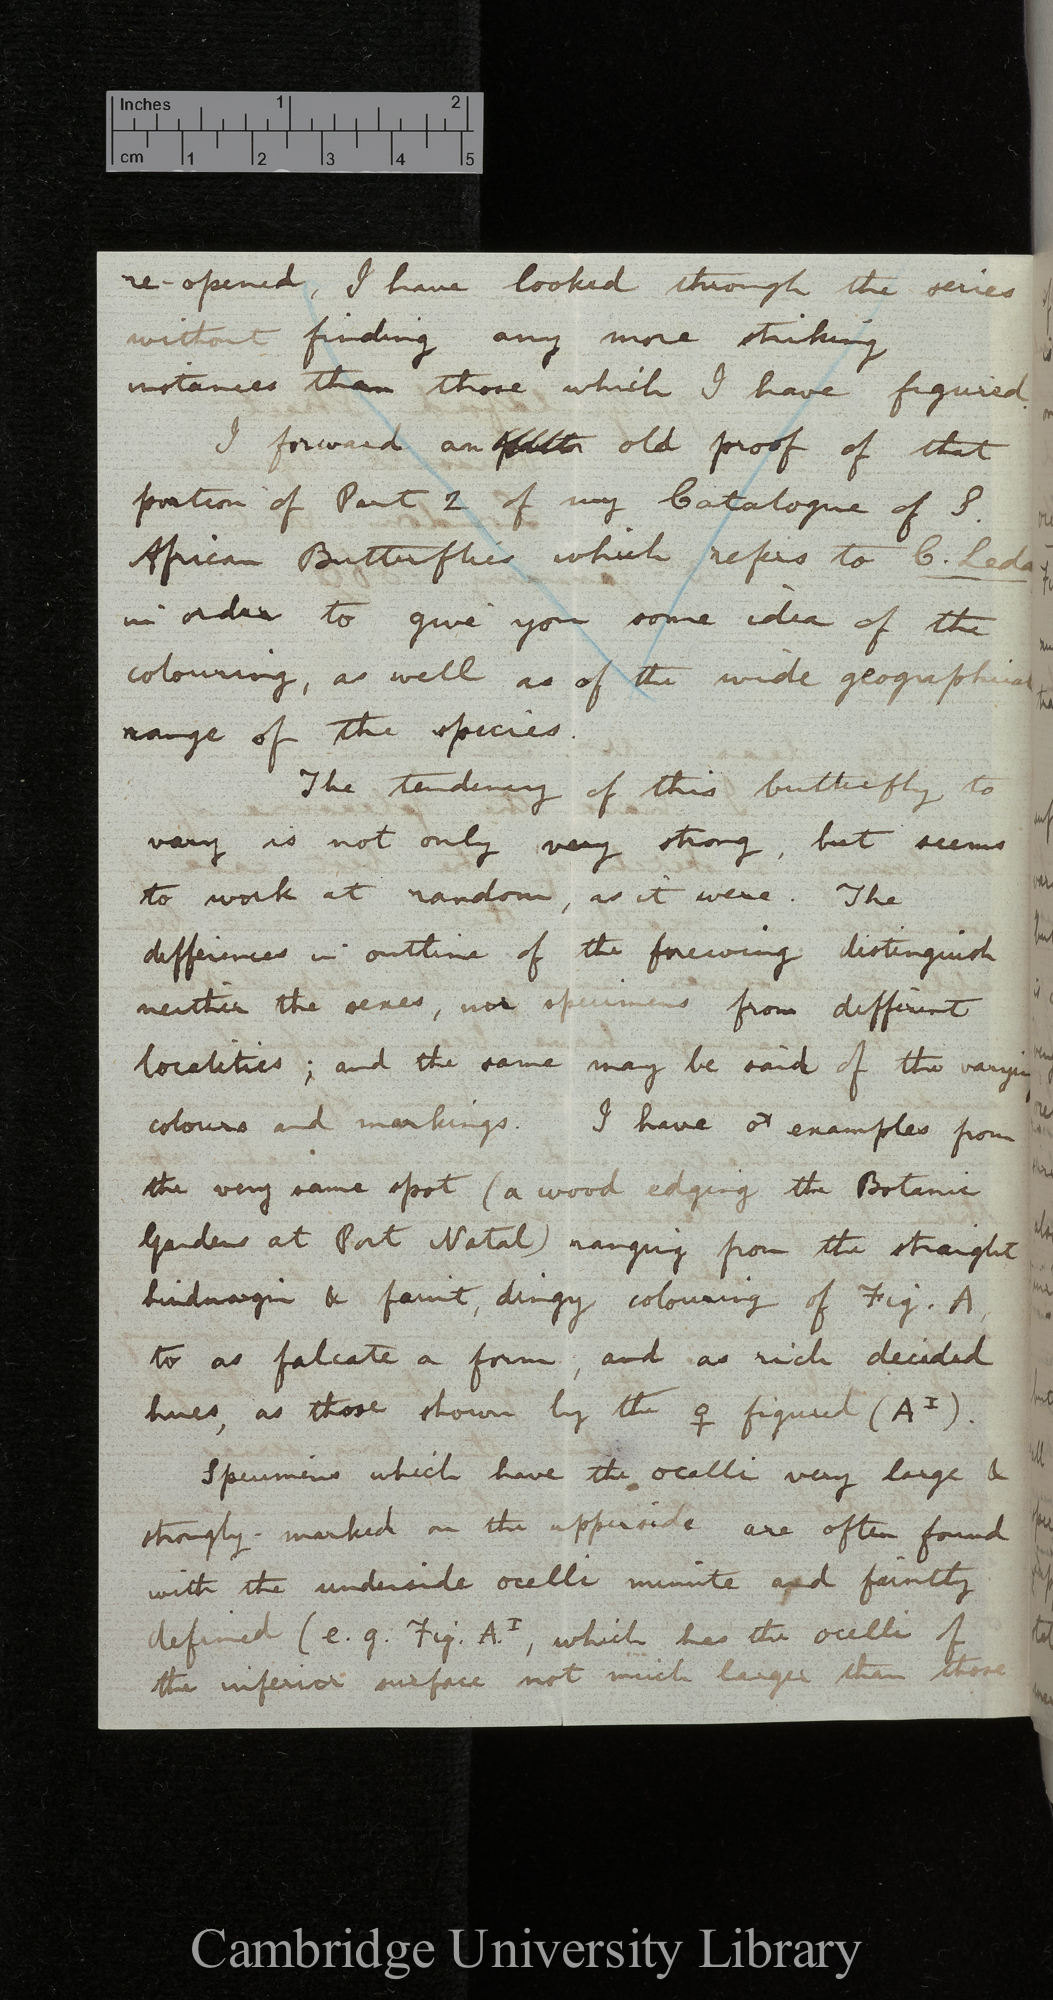 Inches 1 2
cm 1 2 3 4 5
re-opened, I have looked through the series
without finding any more striking
instances than those which I have figured.
I forward an old proof of that
portion of Part 2 of my Catalogue of S.
African Butterflies which refers to C. Leda
in order to give you some idea of the
colouring, as well as of the wide geographical
range of the species.
The tendency of this butterfly to
vary is not only very strong, but seems
to work at random, as it were. The
differences in outline of the forewing distinguish
neither the sexes, nor specimens from different
localities; and the same may be said of the varying
colours and markings. I have ♂ examples from
the very same spot (a wood edging the Botanic
Gardens at Port Natal) ranging from the straight
hindmargin & faint, dingy colouring of Fig. A,
to as falcate a form, and as rich decided
hues, as those shown by the ♀ figured (A^I).
Specimens which have the ocelli very large &
strongly-marked on the upperside are often found
with the underside ocelli minute and faintly
defined (e.g. Fig. A.^I, which has the ocelli of
the inferior surface not much larger than those
Cambridge University Library